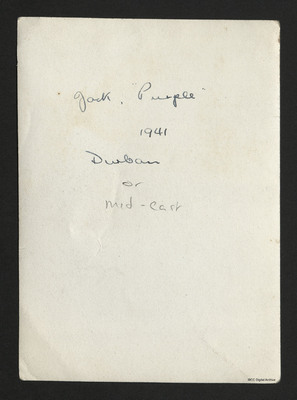 Jack, "Purple"
1941
Durban
or
Mid-East